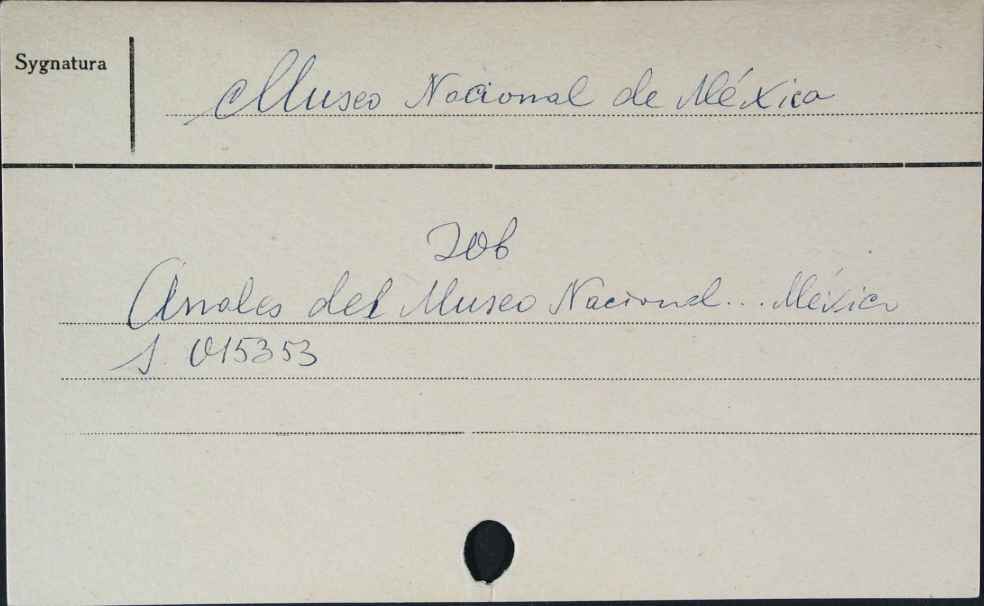 Sygnatura
Museo Nacional de México
zob
Anales del Museo Nacional... México
S. 015353